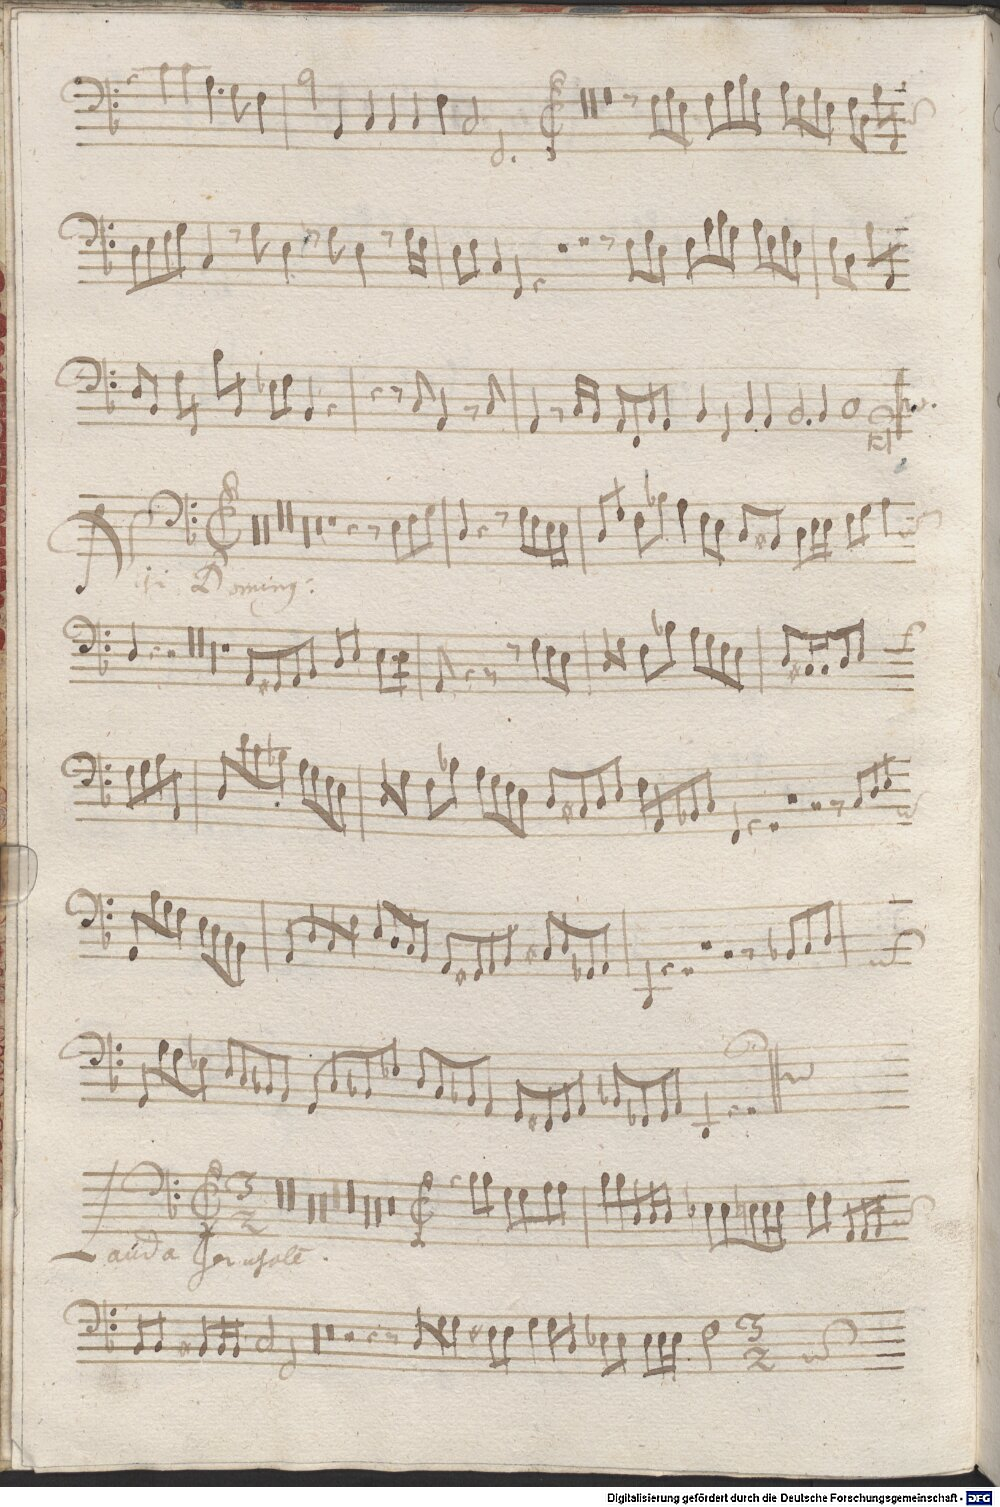 Nisi Doming:
3
2
Lauda Jerusalē.
3
2
Digitalisierung gefördert durch die Deutsche Forschungsgemeinschaft - DFG